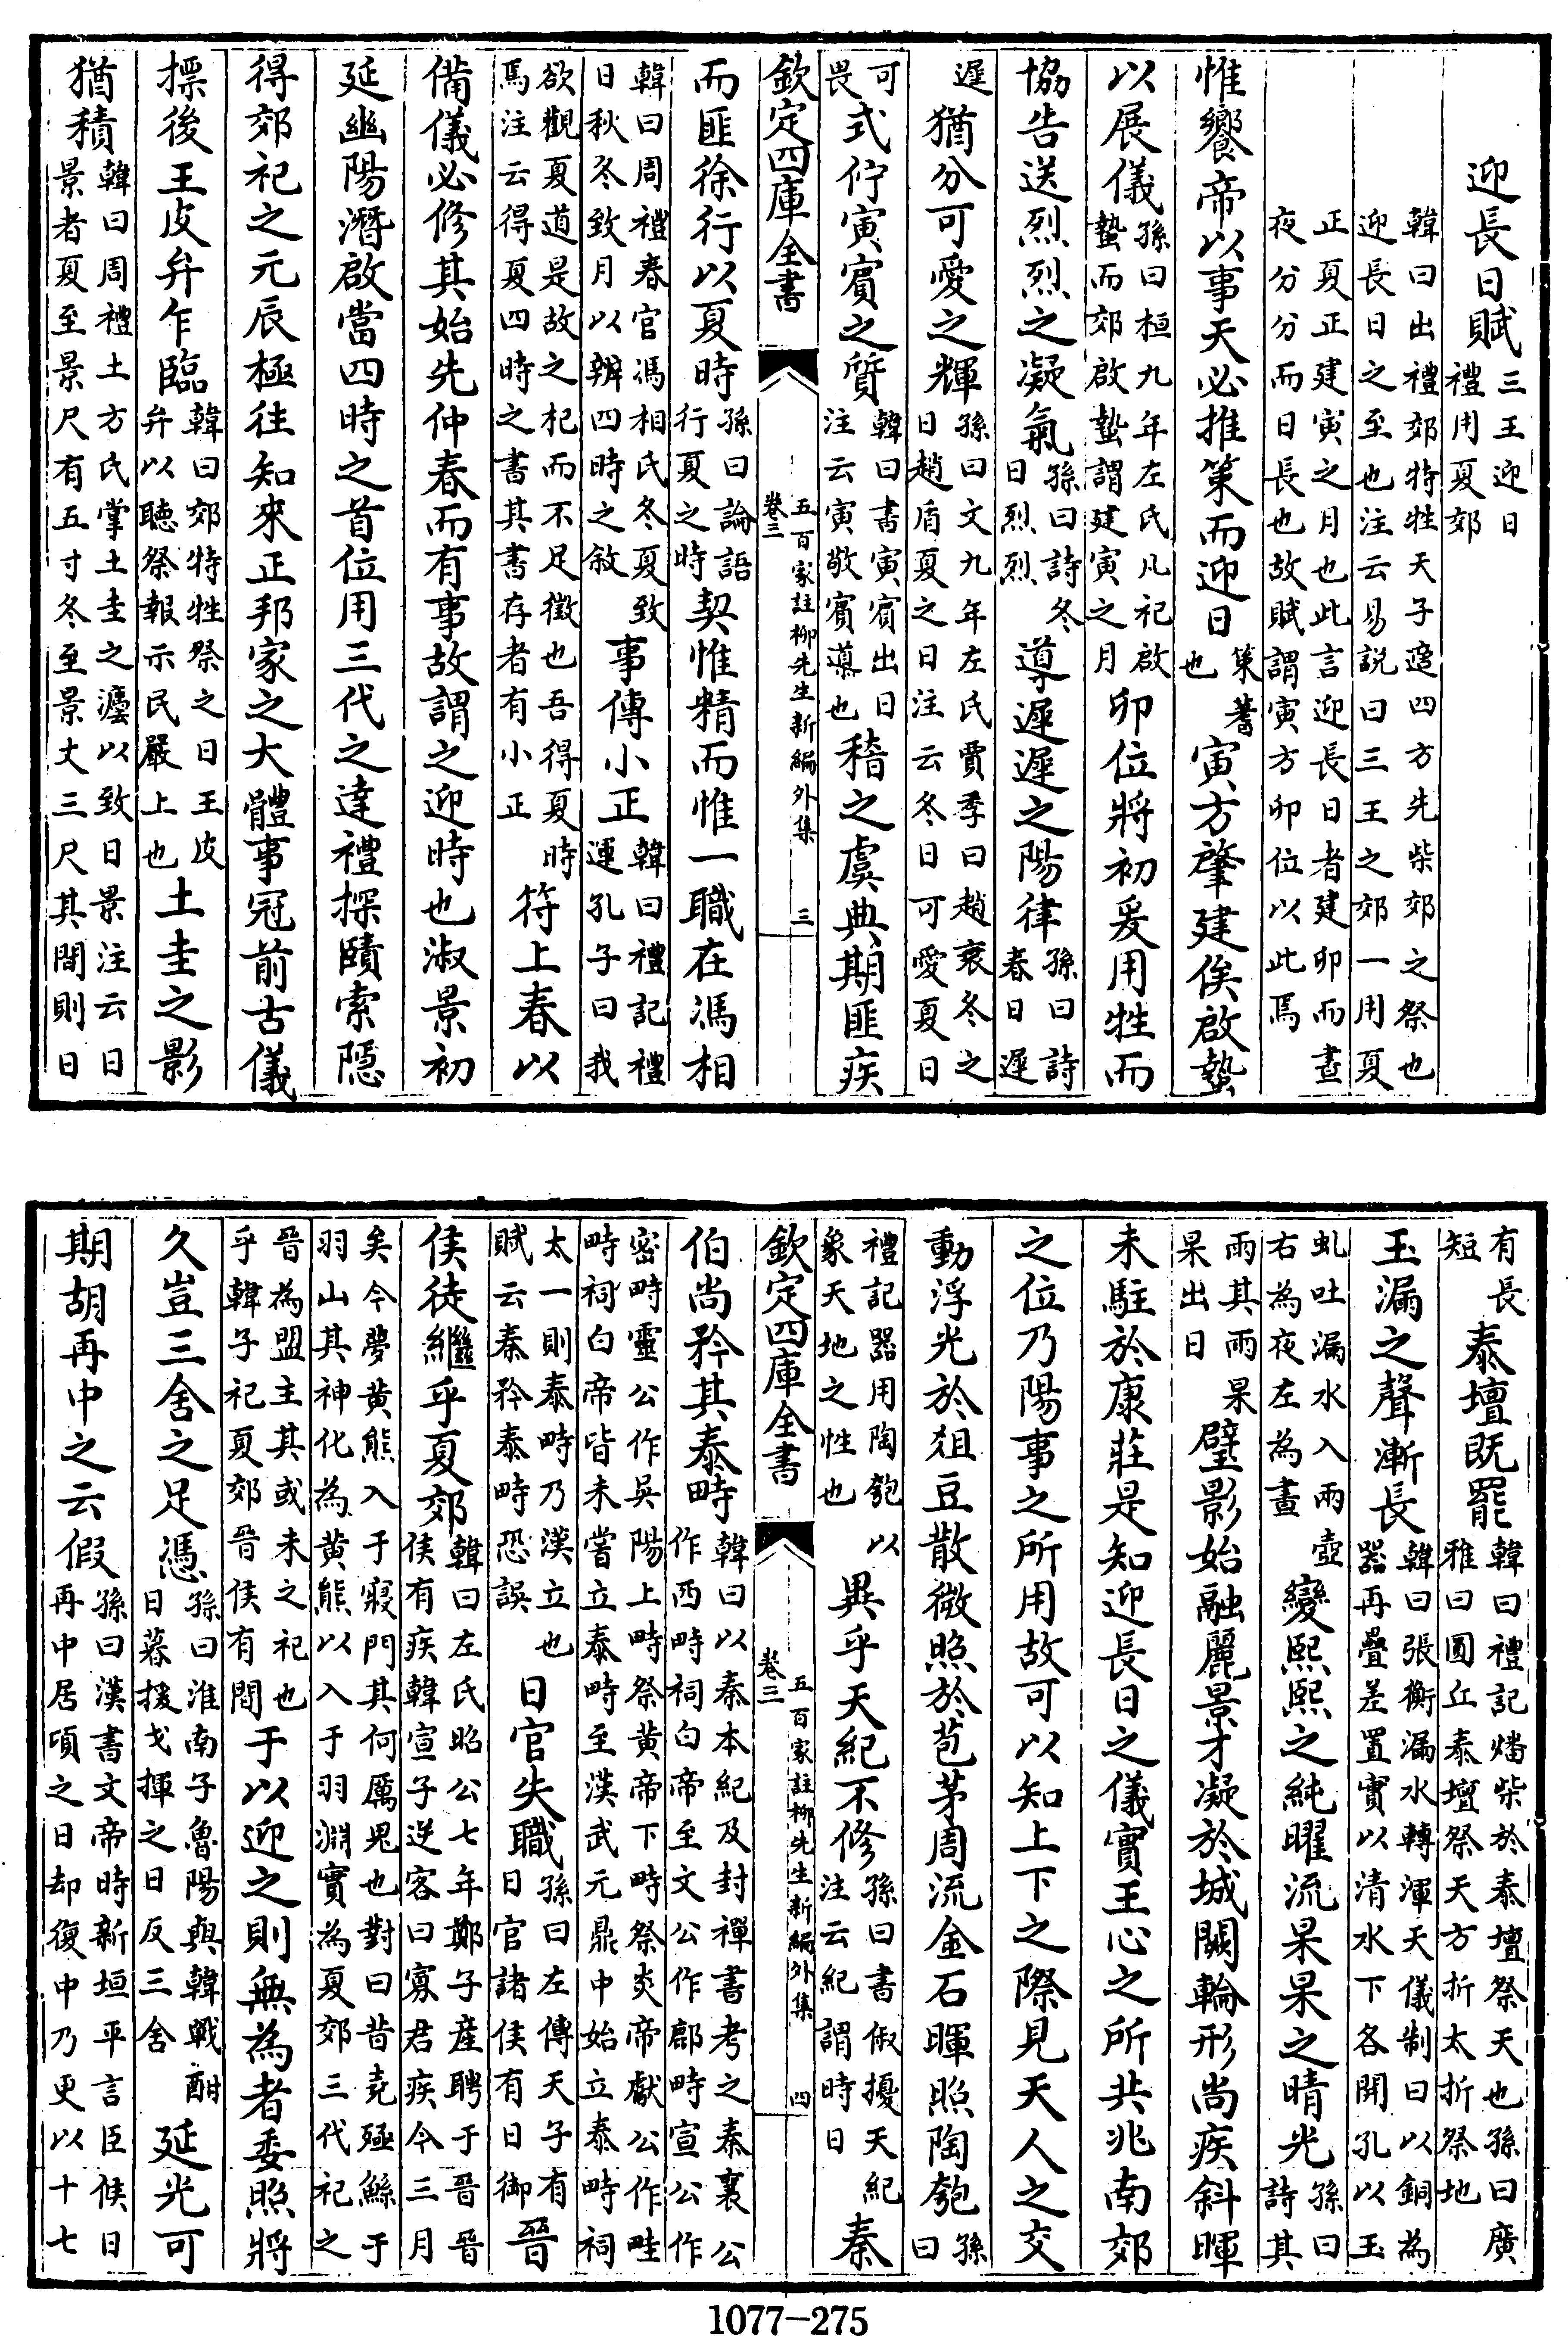 迎長日賦三王迎日禮用夏郊
韓曰出禮郊特牲天子適四方先柴郊之祭也迎長日之至也注云易說曰三王之郊一用夏
正夏正建寅之月也此言迎長日者建卯而晝夜分分而日長也故賦謂寅方卯位以此焉
惟饗帝以事天必推策而迎日策蓍也寅方肇建俟啟蟄
以展儀孫曰桓九年左氏凡祀啟蟄而郊啟蟄謂建寅之月卯位將初爰用牲而
協告送烈烈之凝氣孫曰詩冬日烈烈導遲遲之陽律孫曰詩春日遲
遲猶分可愛之輝孫曰文九年左氏賈季曰趙衰冬之日趙盾夏之日注云冬日可愛夏日
可畏式佇寅賓之質韓曰書寅賓出日注云寅敬賓導也稽之虞典期匪疾
欽定四庫全書
五百家註柳先生新編外集
卷三
三
而匪徐行以夏時孫曰論語行夏之時契惟精而惟一職在馮相
韓曰周禮春官馮相氏冬夏致日秋冬致月以辨四時之敘事傳小正韓曰禮記禮運孔子曰我
欲觀夏道是故之杞而不足徵也吾得夏時焉注云得夏四時之書其書存者有小正符上春以
備儀必修其始先仲春而有事故謂之迎時也淑景初
延幽陽潛啟當四時之首位用三代之達禮探賾索隱
得郊祀之元辰極往知來正邦家之大體事冠前古儀
摽後王皮弁乍臨韓曰郊特牲祭之日王皮弁以聽祭報示民嚴上也土圭之影
猶積韓曰周禮土方氏掌土圭之灋以致日景注云日景者夏至景尺有五寸冬至景丈三尺其間則日
有長短有長泰壇既罷韓曰禮記燔柴於泰壇祭天也孫曰廣雅曰圓丘泰壇祭天方折太折祭地
玉漏之聲漸長韓曰張衡漏水轉渾天儀制曰以銅為器再疊差置實以清水下各開孔以玉
虬吐漏水入兩壺右為夜左為晝變熙熙之純曜流杲杲之晴光孫曰詩其
雨其雨杲杲出日璧影始融麗景才凝於城闕輪形尚疾斜暉
未駐於康莊是知迎長日之儀實王心之所共兆南郊
之位乃陽事之所用故可以知上下之際見天人之交
動浮光於俎豆散微照於苞茅周流金石暉照陶匏孫曰
禮記器用陶匏以象天地之性也異乎天紀不修孫曰書俶擾天紀注云紀謂時日秦
欽定四庫全書
五百家註柳先生新編外集
卷三
四
伯尚矜其泰畤韓曰以秦本紀及封禪書考之秦襄公作西畤祠白帝至文公作鄜畤宣公作
密畤靈公作吳陽上畤祭黃帝下畤祭炎帝獻公作畦畤祠白帝皆未嘗立泰畤至漢武元鼎中始立泰畤祠
太一則泰畤乃漢立也賦云秦矜泰畤恐誤日官失職孫曰左傳天子有日官諸侯有日御晉
侯徒繼乎夏郊韓曰左氏昭公七年鄭子產聘于晉晉侯有疾韓宣子逆客曰寡君疾今三月
矣今夢黃熊入于寢門其何厲鬼也對曰昔堯殛鯀于羽山其神化為黃熊以入于羽淵實為夏郊三代祀之
晉為盟主其或未之祀也乎韓子祀夏郊晉侯有間于以迎之則無為者委照將
久豈三舍之足憑孫曰淮南子魯陽與韓戰酣日暮援戈揮之日反三舍延光可
期胡再中之云假孫曰漢書文帝時新垣平言臣候日再中居頃之日却復中乃更以十七
1077-275